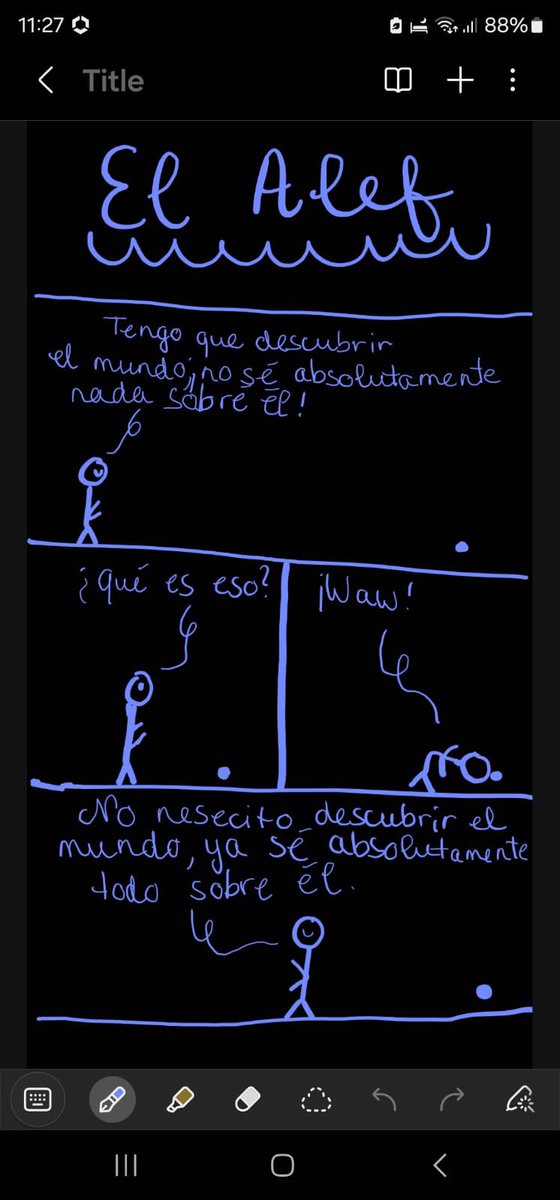 11:27
88%
Title
El Alef
Tengo que descubrir
el mundo, ¡no sé absolutamente
nada sobre él!
¿qué es eso?
¡Waw!
No nesecito descubrir el
mundo, ya sé absolutamente
todo sobre él.